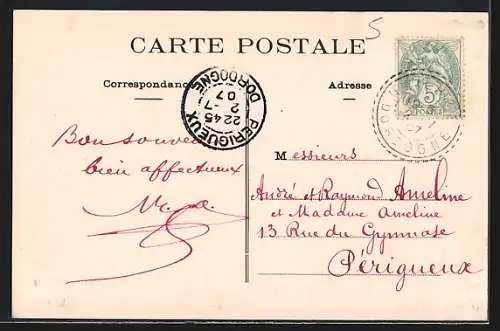 5
CARTE POSTALE
Correspondance
Adresse
PÉRIGUEUX
22 45
2 - 7
07
DORDOGNE
5c
POSTES
DOGNE
Bon souvenir
bien affectueux
Messieurs
André et Raymond Ameline
et Madame Ameline
13 Rue du Gymnase
Périgueux